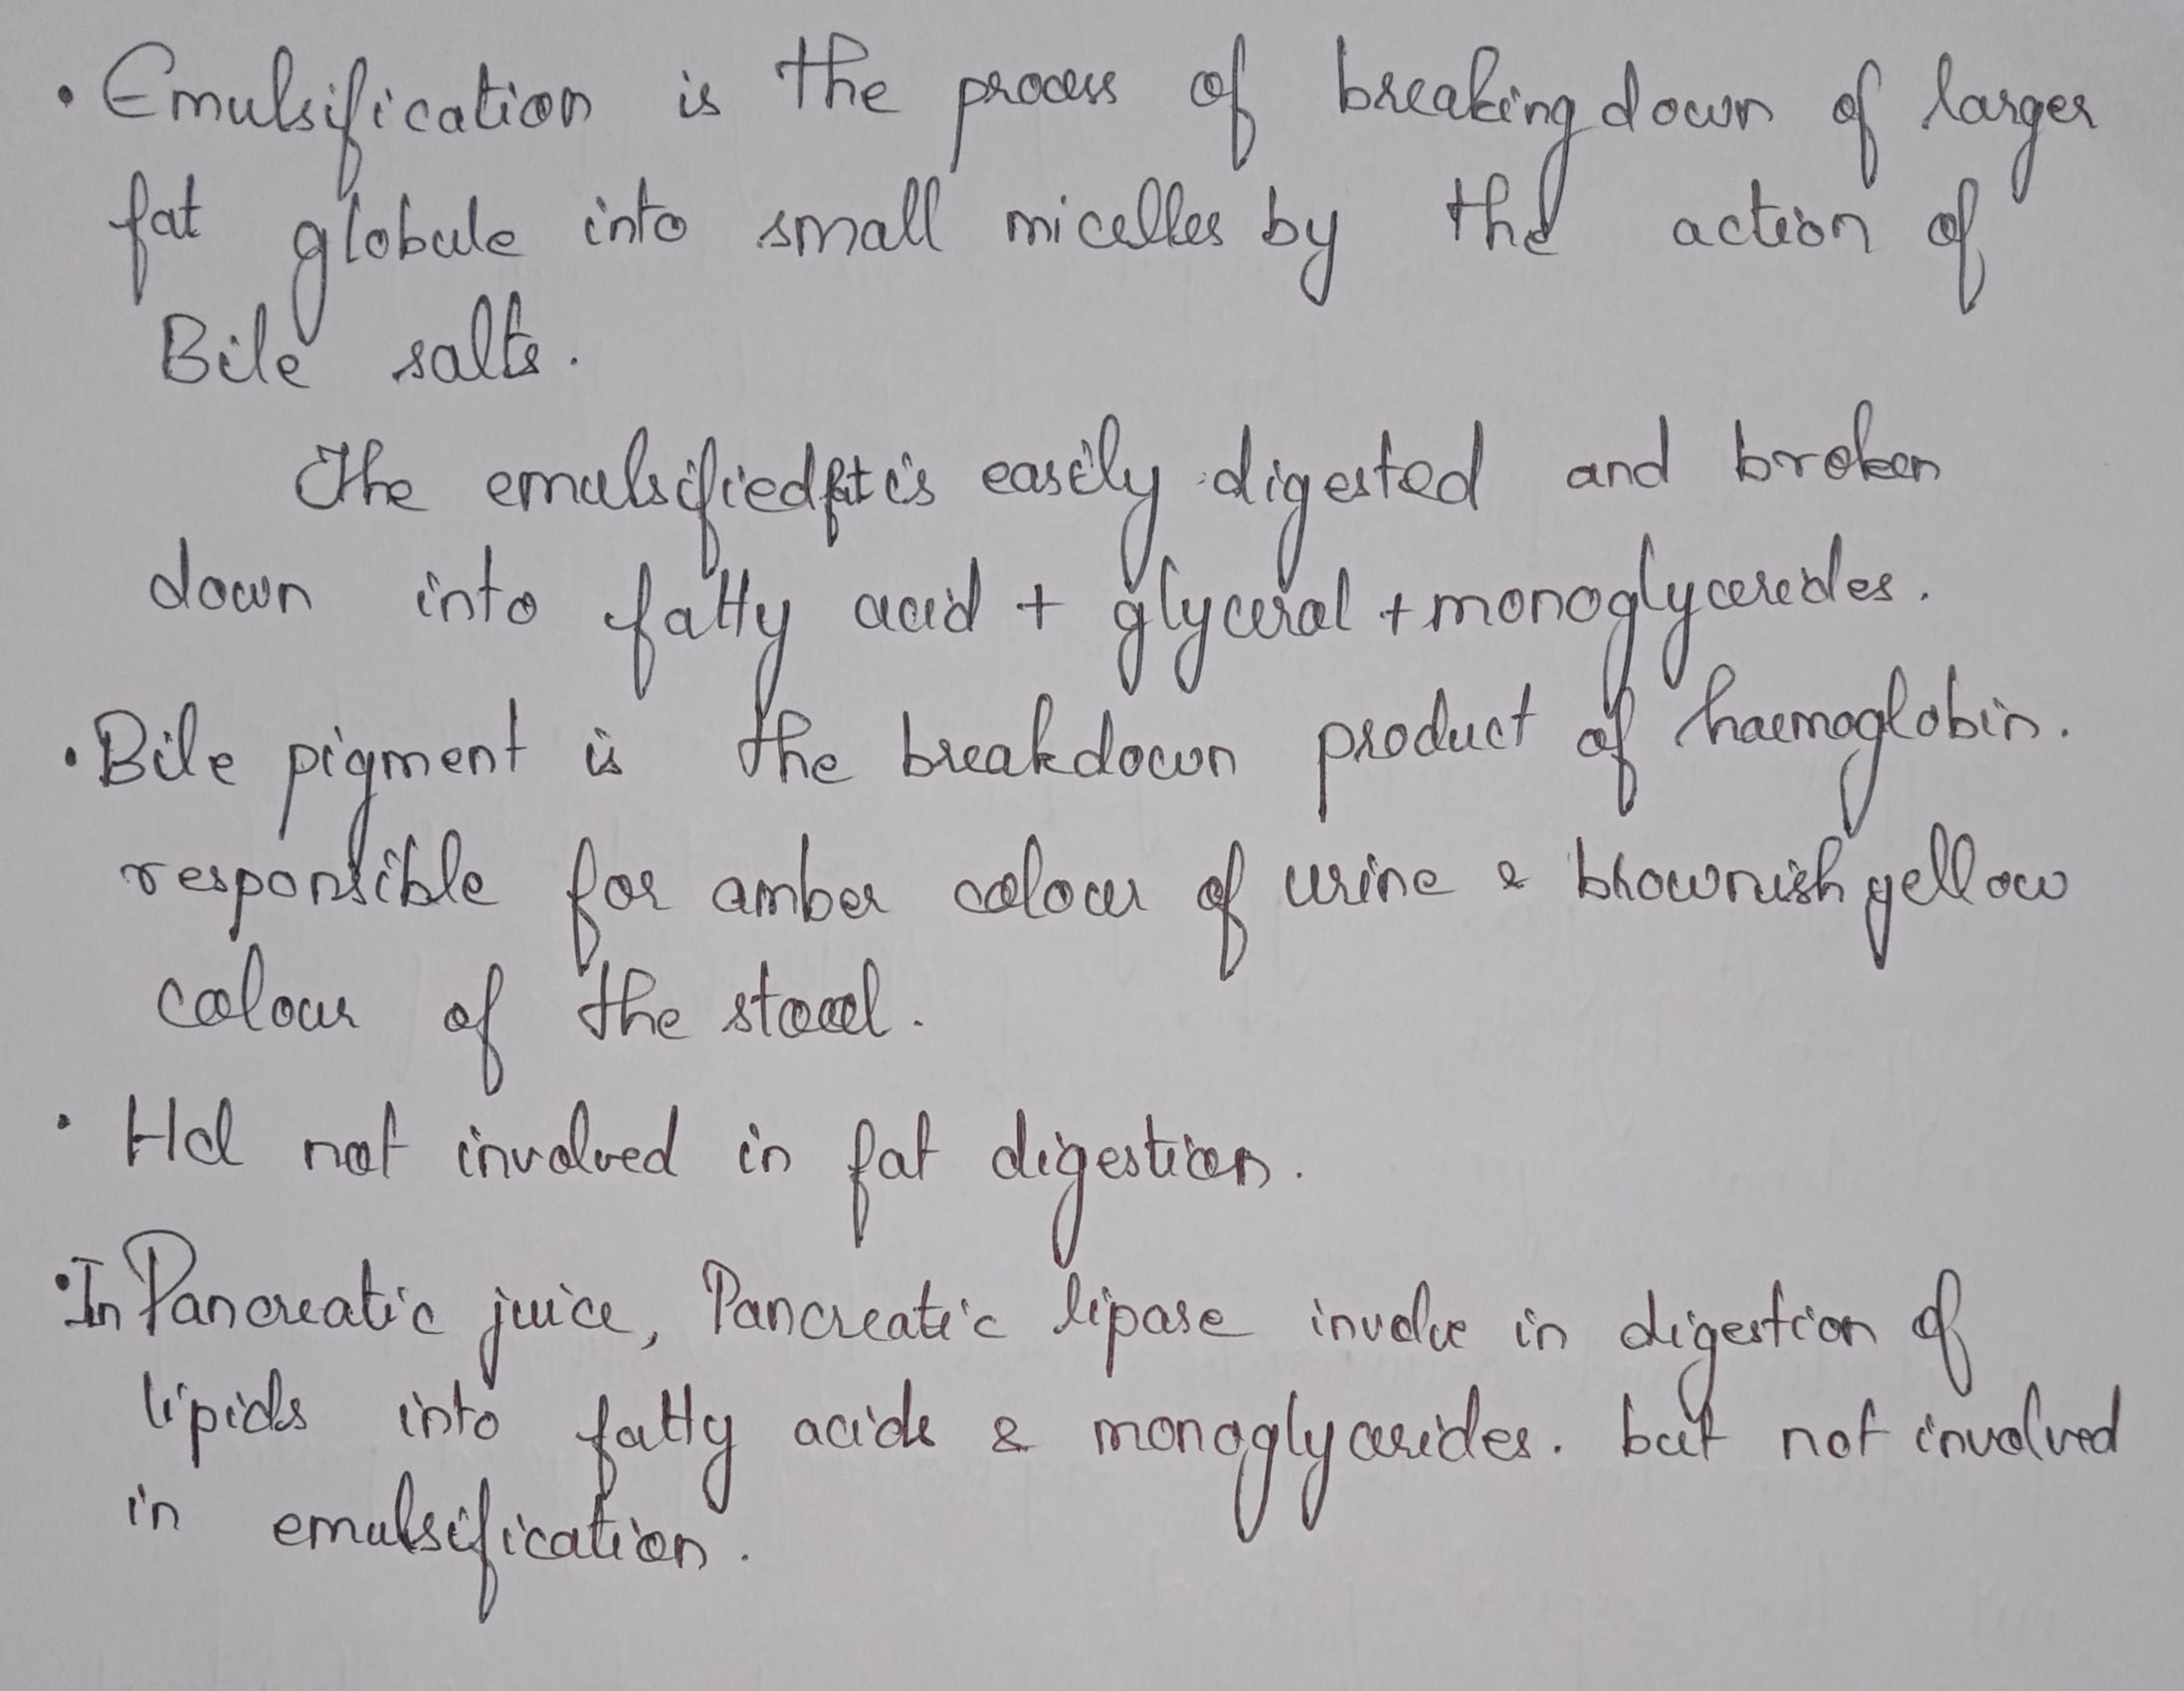 • Emulsification is the process of breaking down of larger
fat globule into small micelles by the action of
Bile salts.
The emulsified fat is easily digested and broken
down into fatty acid + glycerol + monoglycerides.
• Bile pigment is the breakdown product of haemoglobin.
responsible for amber colour of urine & brownish yellow
colour of the stool.
• Hcl not involved in fat digestion.
• In Pancreatic juice, Pancreatic lipase involve in digestion of
lipids into fatty acids & monoglycerides. but not involved
in emulsification.